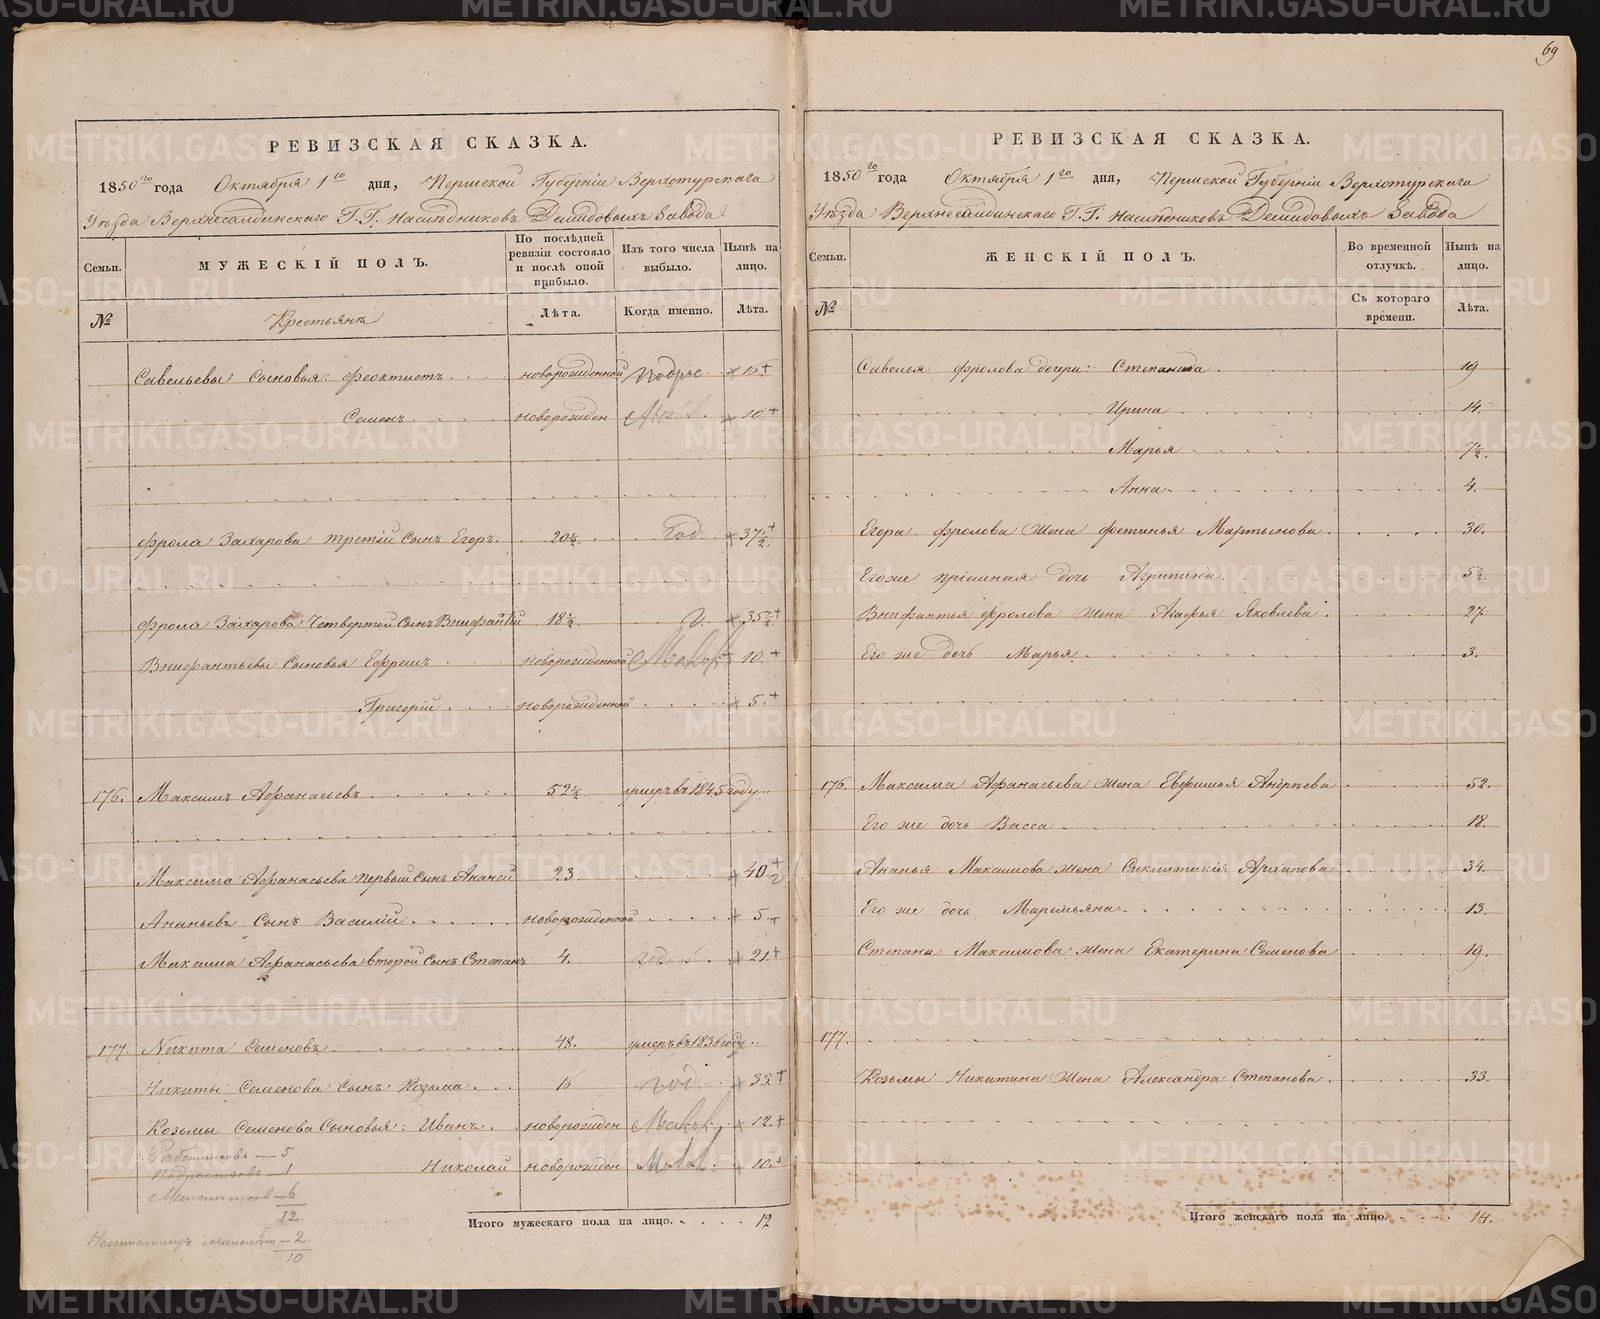 69
РЕВИЗСКАЯ СКАЗКА.
1850го года Октября 1го дня, Пермской Губерніи Верхотурскаго
Уѣзда Верхнесалдинскаго Г.Г. Наслѣдниковъ Демидовыхъ Завода
Семьи. МУЖЕСКІЙ ПОЛЪ. По послѣдней ревизіи состояло и послѣ оной прибыло. Изъ того числа выбыло. Нынѣ на лицо.
№ Крестьянъ Лѣта. Когда именно. Лѣта.
Савельевы Сыновья: Феоктистъ новорожденной подрос. 15
Семенъ новорожден 10
Фрола Захарова третій сынъ Егоръ 20½ год 37½
Фрола Захарова Четвертой Сынъ Внифантій 18½ 35½
Внифантьевы Сыновья Ефремъ новорожденной Малол 10
Григорій новорожденной 5
176. Максимъ Афанасьевъ 52½ умеръ въ 1845 году
Максима Афанасьева первый сынъ Ананій 23. 40½
Ананьевъ Сынъ Василій новорожденной 5
Максима Афанасьева второй Сынъ Степанъ 4. 21
177. Никита Семеновъ 48. умеръ въ 1836 году
Никиты Семенова Сынъ Козьма 16 год 33
Козьмы Семенова Сыновья: Иванъ новорожден Малол. 12
Николай новорожден Малол. 10
Работниковъ — 5
Подростковъ — 1
Малолѣтковъ — 6
12.
малолѣт — 2
10
Итого мужескаго пола на лицо. 12
РЕВИЗСКАЯ СКАЗКА.
1850го года Октября 1го дня, Пермской Губерніи Верхотурскаго
Уѣзда Верхнесалдинскаго Г.Г. Наслѣдниковъ Демидовыхъ Завода
Семьи. ЖЕНСКІЙ ПОЛЪ. Во временной отлучкѣ. Нынѣ на лицо.
№ Съ котораго времени. Лѣта.
Савелья Фролова дочери: Степанида 19
Ирина 14.
Марья 7½.
Анна 4.
Егора Фролова Жена Фотинья Мартынова 30.
Его же пріемная дочь Агрипина 5½.
Внифантья Фролова жена Агафья Яковлева 27
Его же дочь Марья 3.
176. Максима Афанасьева жена Евфимья Андрѣева 52.
Его же дочь Васса 18.
Ананья Максимова жена Сиклитикія Архипова 34.
Его же дочь Маремьяна 13.
Степана Максимова жена Екатерина Семенова 19.
177.
Козьмы Никитина Жена Александра Степанова 33.
Итого женскаго пола на лицо. 14.
METRIKI.GASO-URAL.RU